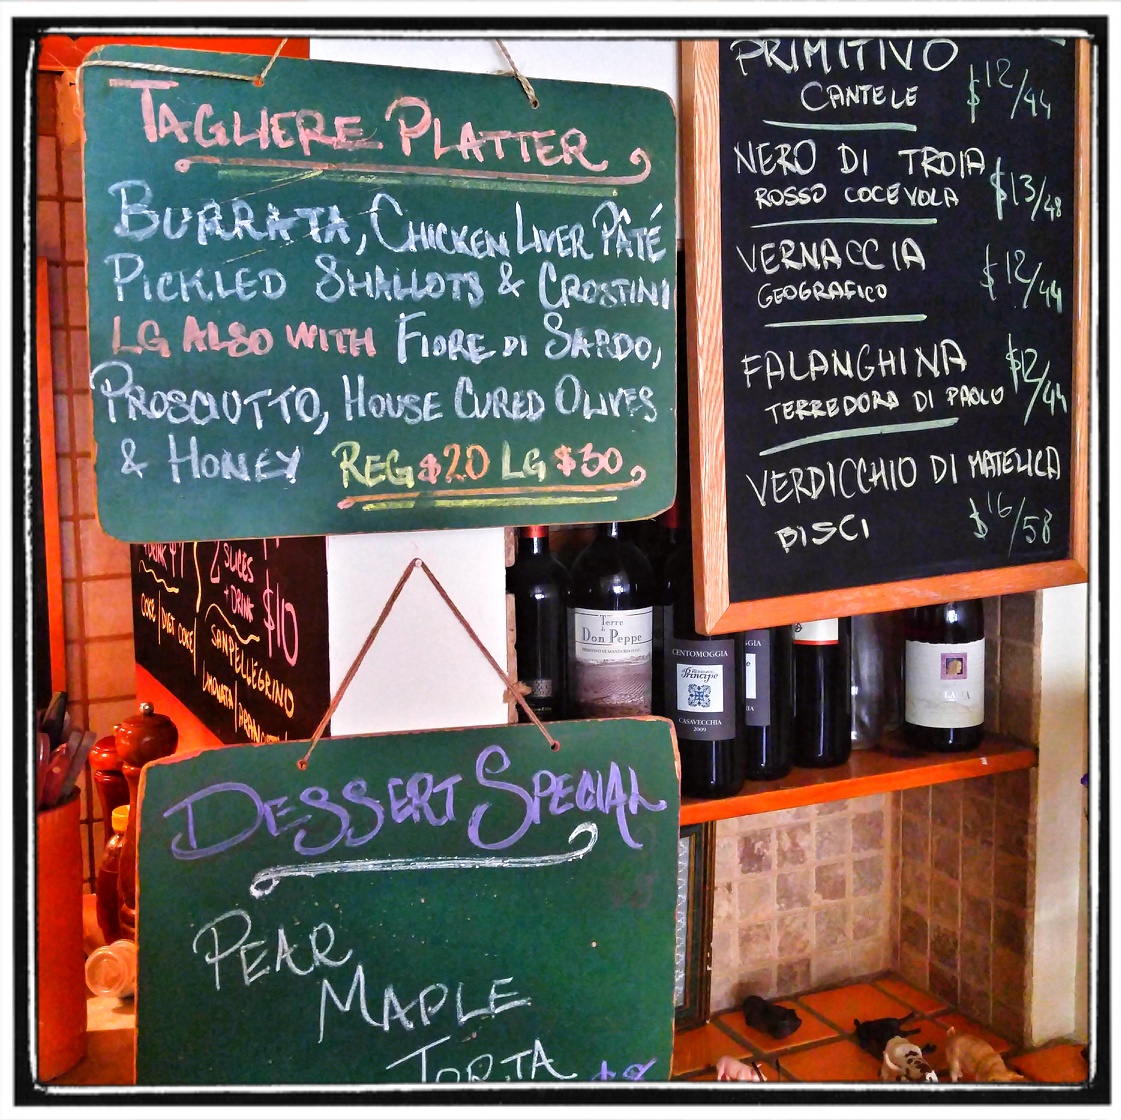 TAGLIERE PLATTER
BURRATA, CHICKEN LIVER PÂTÉ
PICKLED SHALLOTS & CROSTINI
LG ALSO WITH FIORE DI SARDO,
PROSCIUTTO, HOUSE CURED OLIVES
& HONEY REG $20 LG $30
PRIMITIVO
CANTELE $12/44
NERO DI TROIA
ROSSO COCEVOLA $13/48
VERNACCIA
GEOGRAFICO $12/44
FALANGHINA $12/44
TERREDORA DI PAOLO
VERDICCHIO DI MATELICA
BISCI $16/58
2 SLICES
+ DRINK $10
COKE/DIET COKE/
SANPELLEGRINO
LIMONATA/
Terre
Don Peppe
CENTOMOGGIA
Principe
CASAVECCHIA
2009
DESSERT SPECIAL
PEAR
MAPLE
TORTA $8